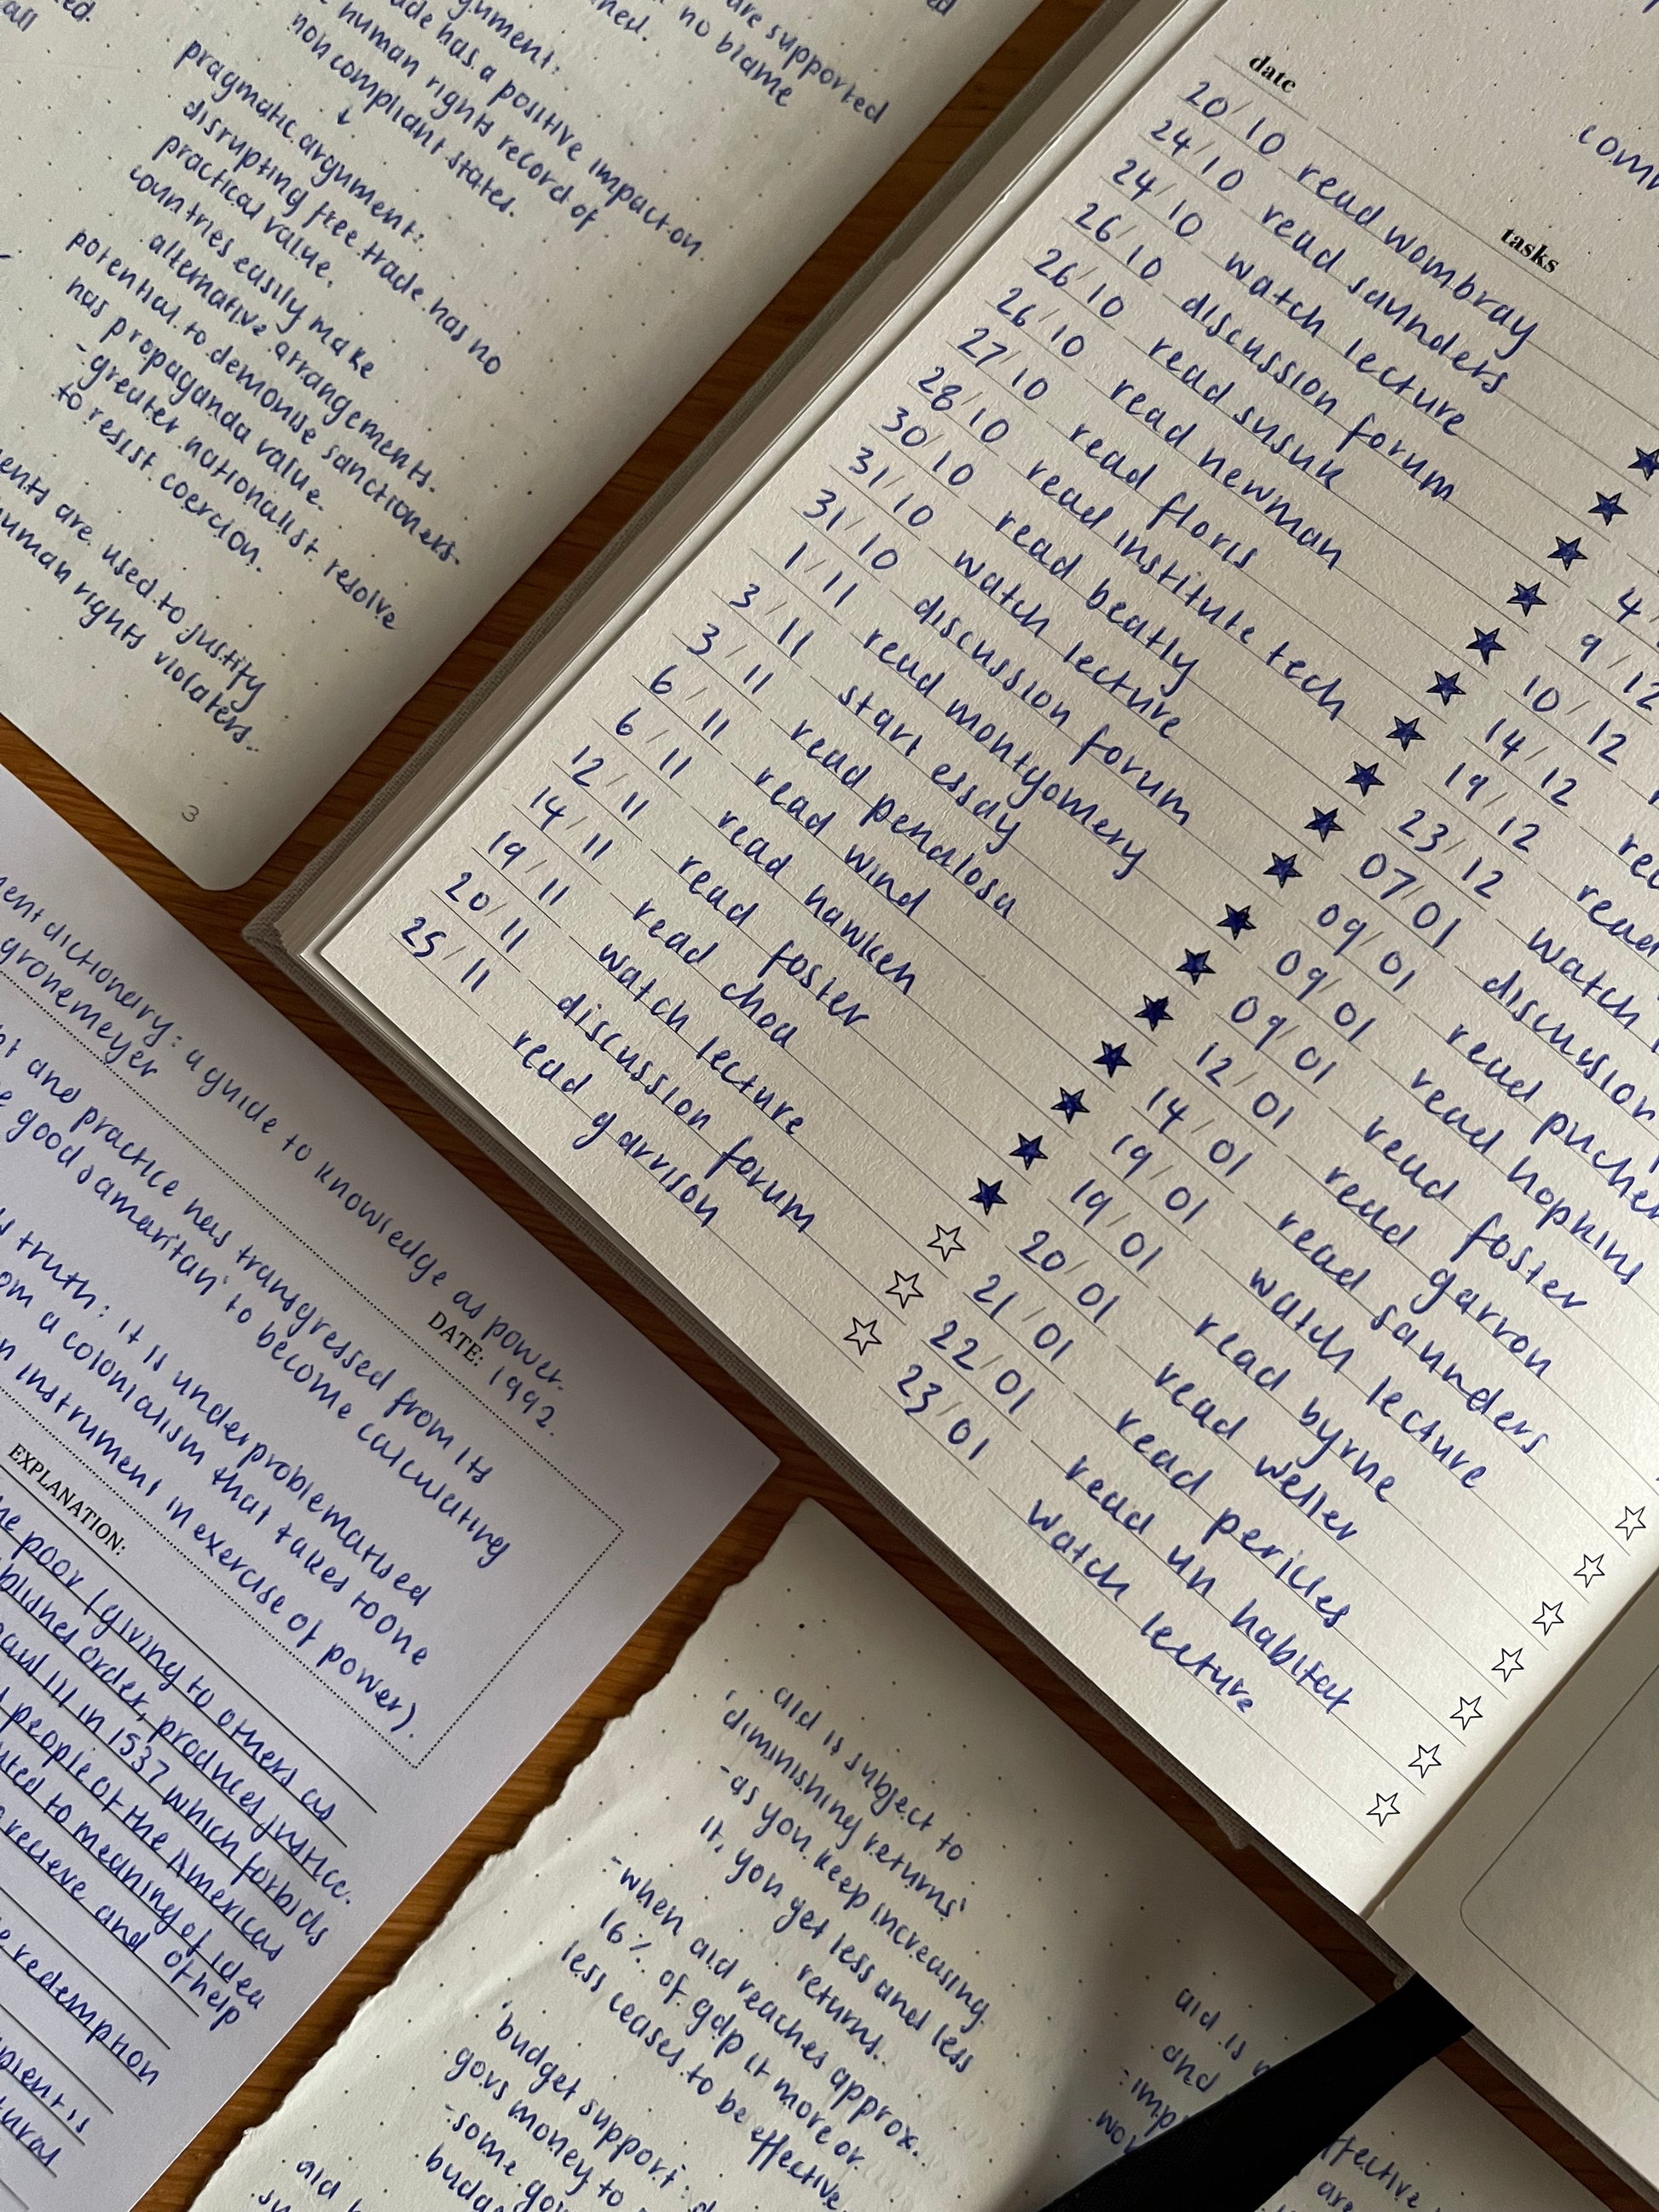 are supported
no blame
has a positive impact on
human rights record of
non compliant states.
pragmatic argument:
disrupting free trade has no
practical value.
countries easily make
alternative arrangements.
potential to demonise sanctioners.
has propaganda value.
-greater nationalist resolve
to resist coercion.
are used to justify
human rights violaters.
3
date tasks
20/10 read wombray
24/10 read saunders
24/10 watch lecture
26/10 discussion forum
26/10 read susuk
26/10 read newman
27/10 read floris
28/10 read institute tech
30/10 read beatly
31/10 watch lecture
31/10 discussion forum
1/11 read montgomery
3/11 start essay
3/11 read penalosa
6/11 read wind
6/11 read hawken
12/11 read foster
14/11 read chou
19/11 watch lecture
20/11 discussion forum
25/11 read garrison
9/12
10/12
14/12
19/12 read
23/12 watch
07/01 discussion
09/01 read
09/01 read hopkins
09/01 read foster
12/01 read garron
14/01 read saunders
19/01 watch lecture
19/01 read byrne
20/01 read weller
21/01 read pericles
22/01 read un habitat
23/01 watch lecture
dictionary: a guide to knowledge as power.
gronemeyer DATE: 1992.
and practice has transgressed from its
good samaritan' to become calculating
truth: it is underproblematised
from a colonialism that takes to one
instrument in exercise of power).
EXPLANATION:
poor (giving to others as
order, produces justice.
paul III in 1537 which forbids
people of the Americas
to meaning of idea
recieve and of help
redemption
aid is subject to
'diminishing returns'
-as you keep increasing
it, you get less and less
returns.
-when aid reaches approx.
16% of gdp it more or
less ceases to be effective.
'budget support':
govs money to
-some gov
aid is
and